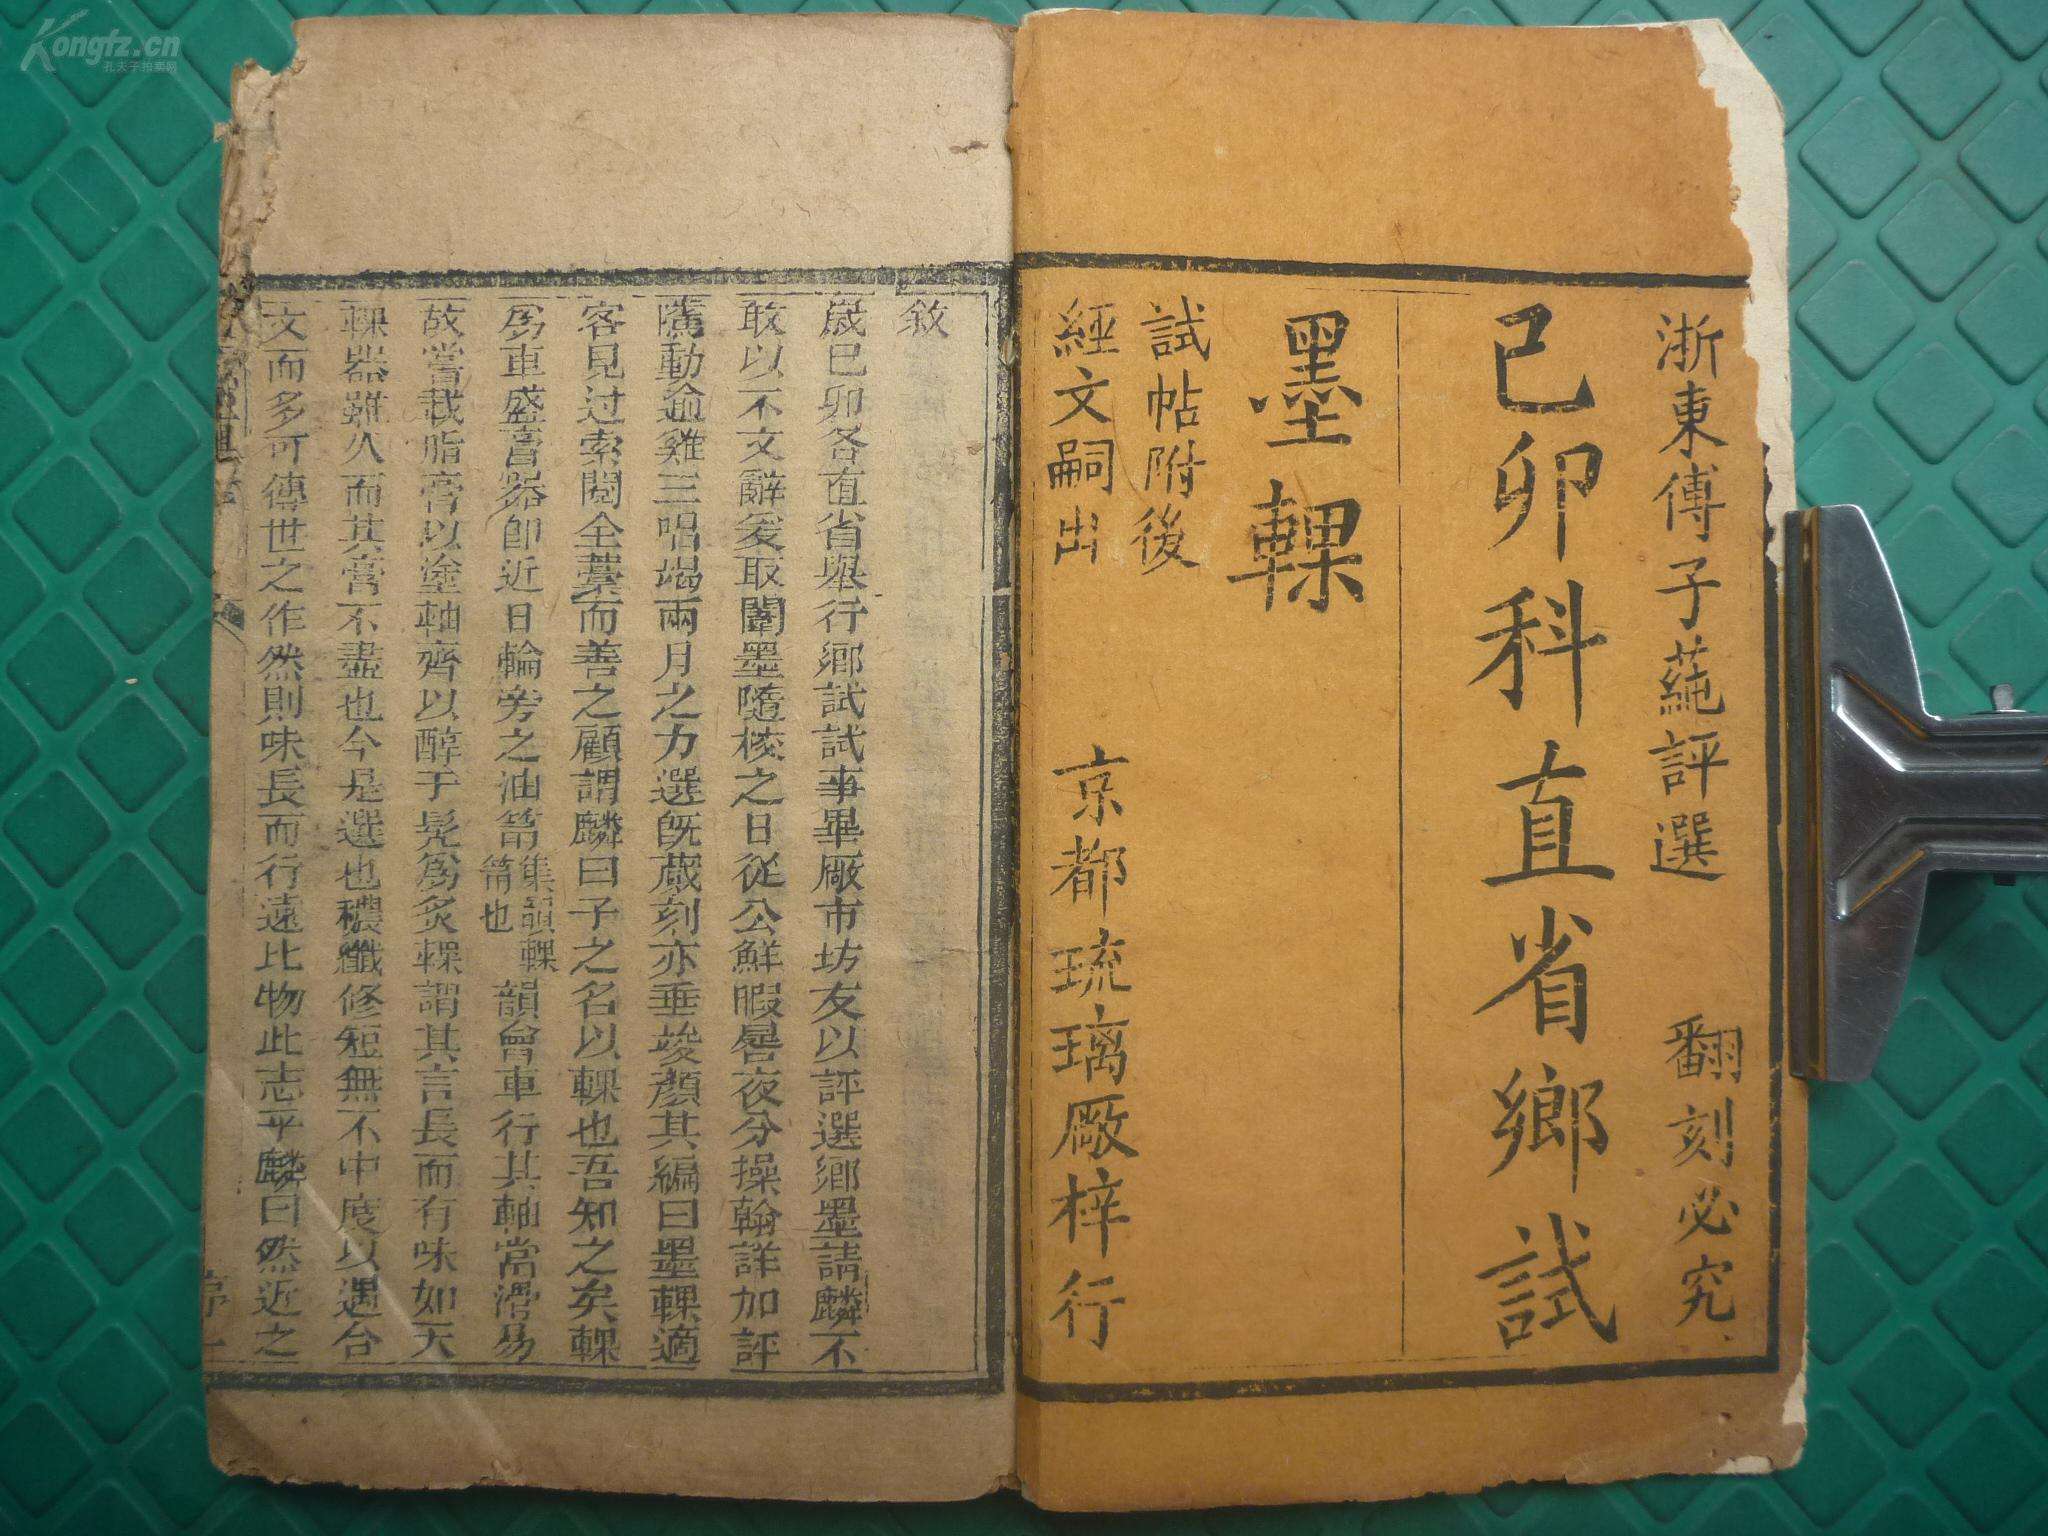 浙東傅子蒓評選 翻刻必究
己卯科直省鄉試
墨輠
試帖附後
經文嗣出
京都琉璃廠梓行
敘
歲己卯各直省舉行鄉試試事畢廠市坊友以評選鄉墨請麟不
敢以不文辭爰取闈墨隨校之日從公鮮暇晷夜分操翰詳加評
隲動逾雞三唱竭兩月之力選旣蕆刻亦垂竣顏其編曰墨輠適
客見过索閱全藁而善之顧謂麟曰子之名以輠也吾知之矣輠
爲車盛膏器卽近日輪旁之油筩集韻輠筩也韻會車行其軸常滑易
故嘗載脂膏以塗軸齊以醳于髡爲炙輠謂其言長而有味如天
輠器雖久而其膏不盡也今是選也穠纖修短無不中度以遇合
文而多可傳世之作然則味長而行遠比物此志乎麟曰然近之
序
一
Kongfz.cn
孔夫子拍卖网